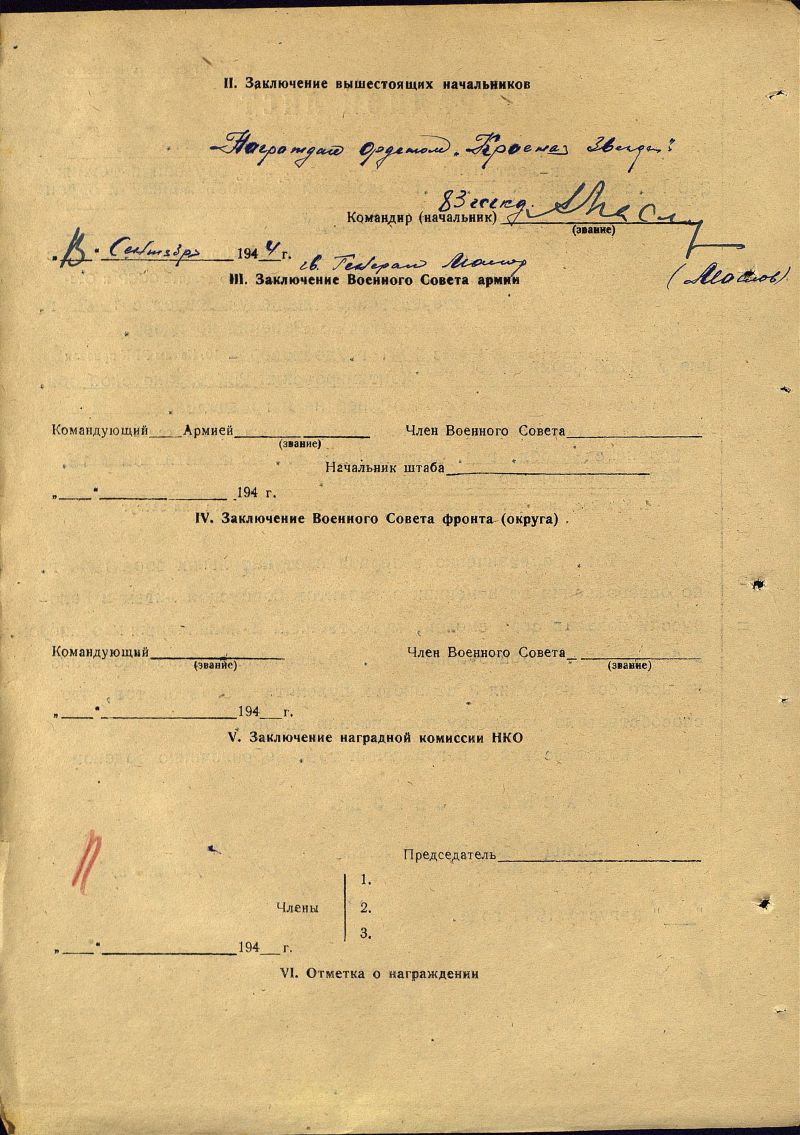 II. Заключение вышестоящих начальников
Награждаю орденом „Красная Звезда“
83 гскд.
Командир (начальник)
(звание)
"13" Сентября 1944 г.
гв. Генерал Майор
(Маслов)
III. Заключение Военного Совета армии
Командующий ___ Армией ___ Член Военного Совета ___
(звание)
Начальник штаба ___
„___“ ___ 194 г.
IV. Заключение Военного Совета фронта (округа)
Командующий ___ Член Военного Совета ___
(звание) (звание)
„___“ ___ 194__г.
V. Заключение наградной комиссии НКО
Председатель ___
1.
Члены 2.
3.
„___“ ___ 194__г.
VI. Отметка о награждении